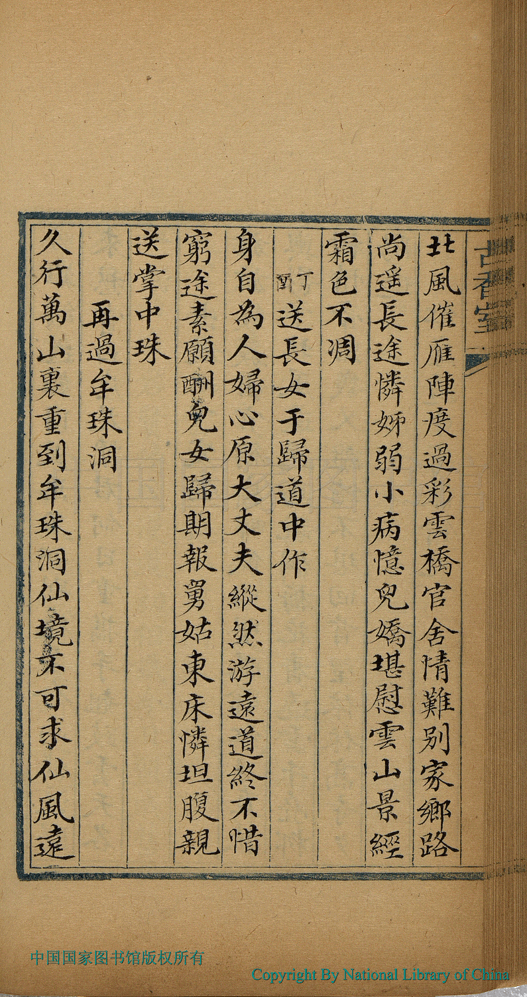 古香室
北風催雁陣度過彩雲橋官舍情難别家鄉路
尚遥長途憐姊弱小病憶兒嬌堪慰雲山景經
霜色不凋
丁酉送長女于歸道中作
身自為人婦心原大丈夫縱然游遠道終不惜
窮途素願酬兒女歸期報舅姑東床憐坦腹親
送掌中珠
再過牟珠洞
久行萬山裏重到牟珠洞仙境不可求仙風遠
中国国家图书馆版权所有
Copyright By National Library of China